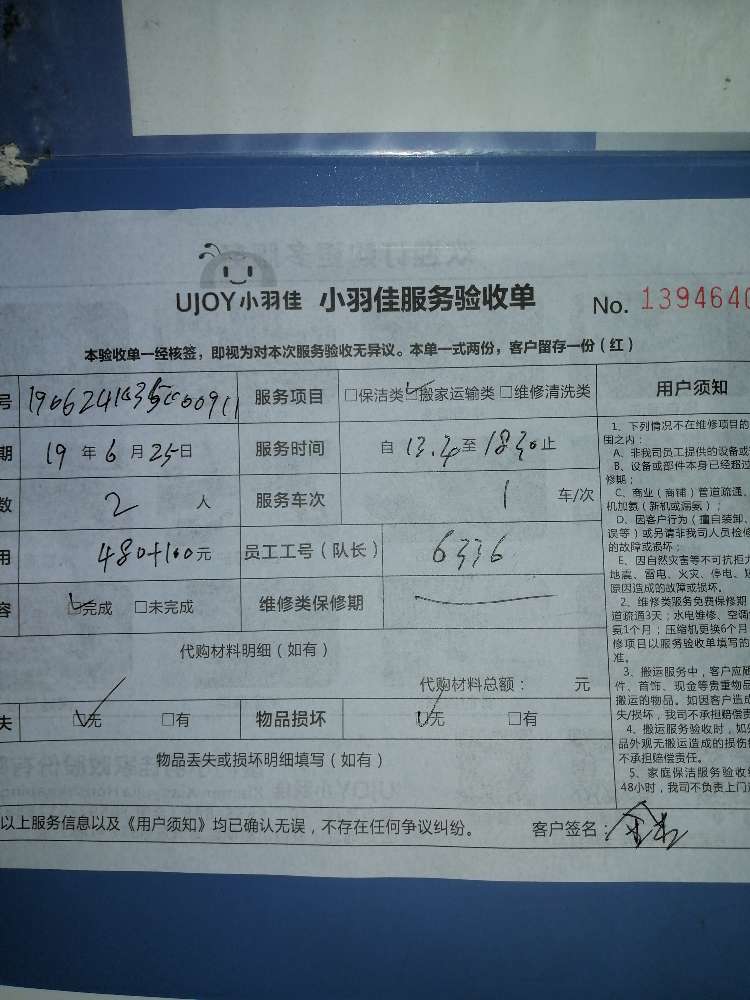 UJOY小羽佳 小羽佳服务验收单 No. 1394640
本验收单一经核签，即视为对本次服务验收无异议。本单一式两份，客户留存一份（红）
号 服务项目 □保洁类 ☑搬家运输类 □维修清洗类 用户须知
期 19 年 6 月 25 日 服务时间 自 至 1830 止
数 2 人 服务车次 1 车/次
用 480+100 元 员工工号（队长） 6336
容 ☑完成 □未完成 维修类保修期
代购材料明细（如有）
代购材料总额： 元
失 ☑无 □有 物品损坏 ☑无 □有
物品丢失或损坏明细填写（如有）
以上服务信息以及《用户须知》均已确认无误，不存在任何争议纠纷。 客户签名：
1、下列情况不在维修项目的
围之内：
A、非我司员工提供的设备或
B、设备或部件本身已经超过
修期；
C、商业（商铺）管道疏通、
机加氨（新机或漏氨）；
D、因客户行为（擅自装卸、
误等）或另请非我司人员检修
的故障或损坏；
E、因自然灾害等不可抗拒力
地震、雷电、火灾、停电、
原因造成的故障或损坏。
2、维修类服务免费保修期
道疏通3天；水电维修、空调
氨1个月；压缩机更换6个月
修项目以服务验收单填写的
准。
3、搬运服务中，客户应
件、首饰、现金等贵重物品
搬运的物品。如因客户造成
失/损坏，我司不承担赔偿责
4、搬运服务验收时，如
品外观无搬运造成的损伤
不承担赔偿责任。
5、家庭保洁服务验收
48小时，我司不负责上门